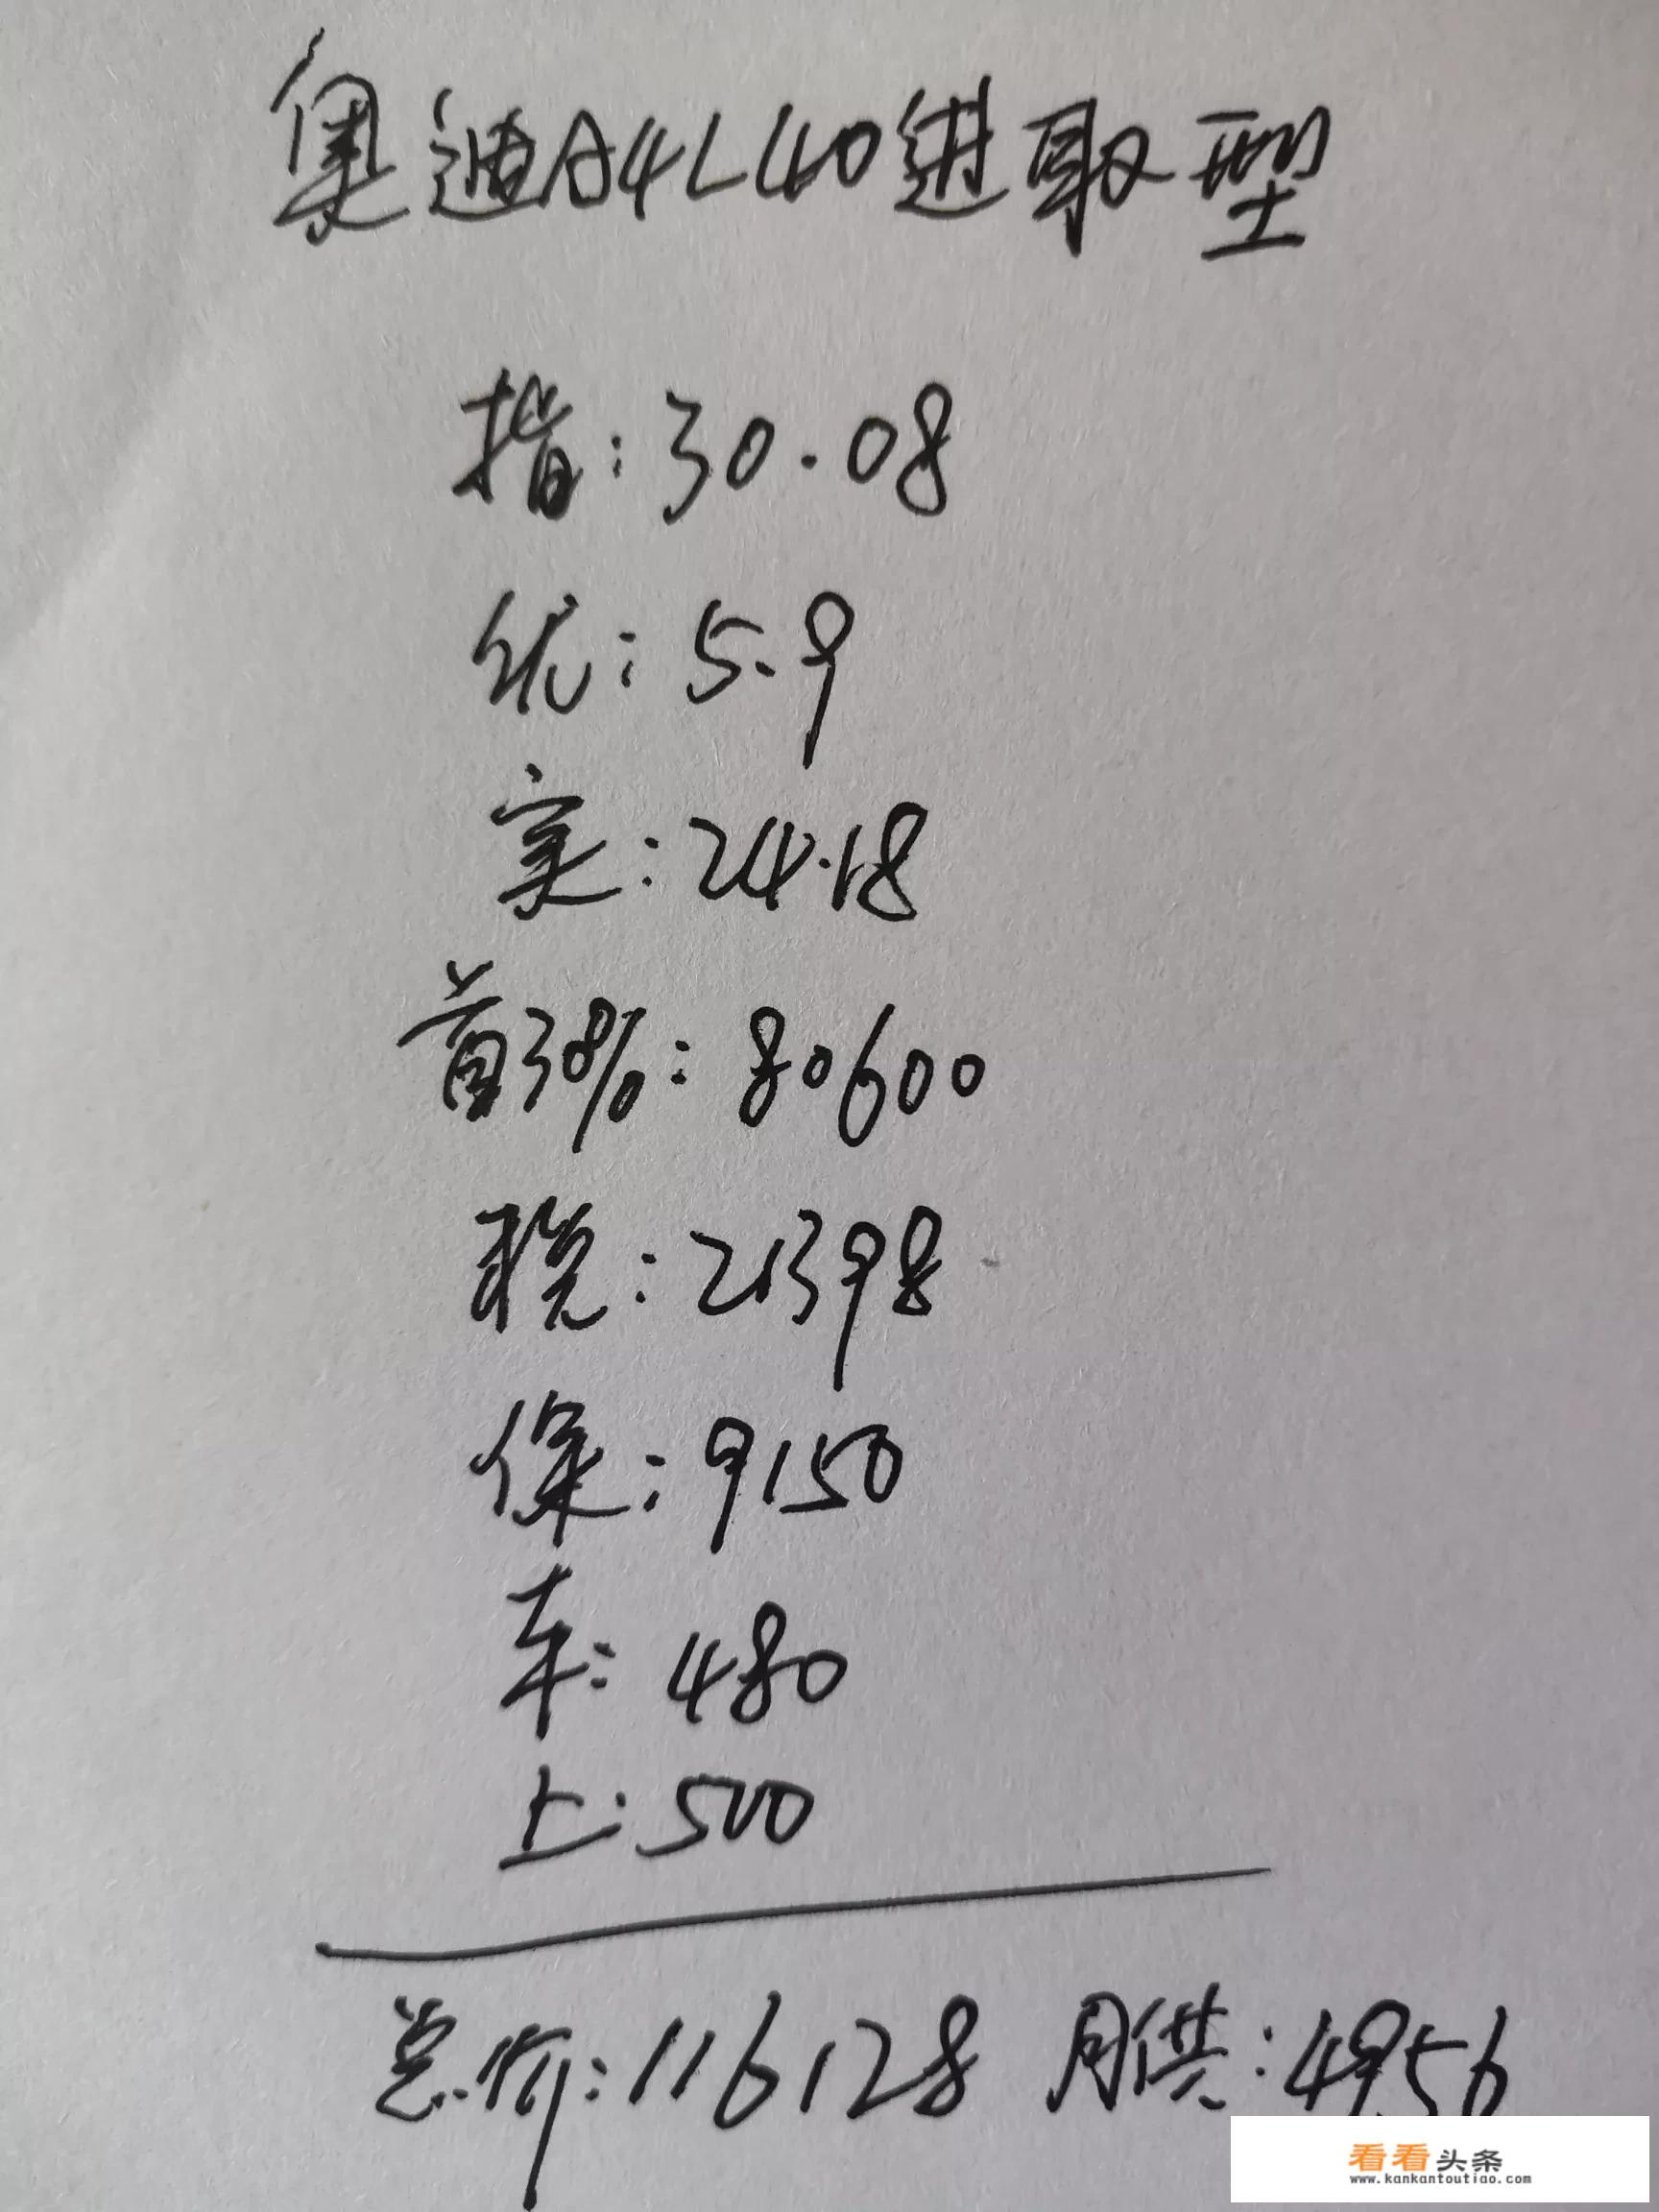 奥迪A4L40进取型
指:30.08
优:5.9
实:24.18
首30%:80600
税:21398
保:9150
车:480
上:500
总价:116128 月供:4956
看看头条
www.kankantoutiao.com